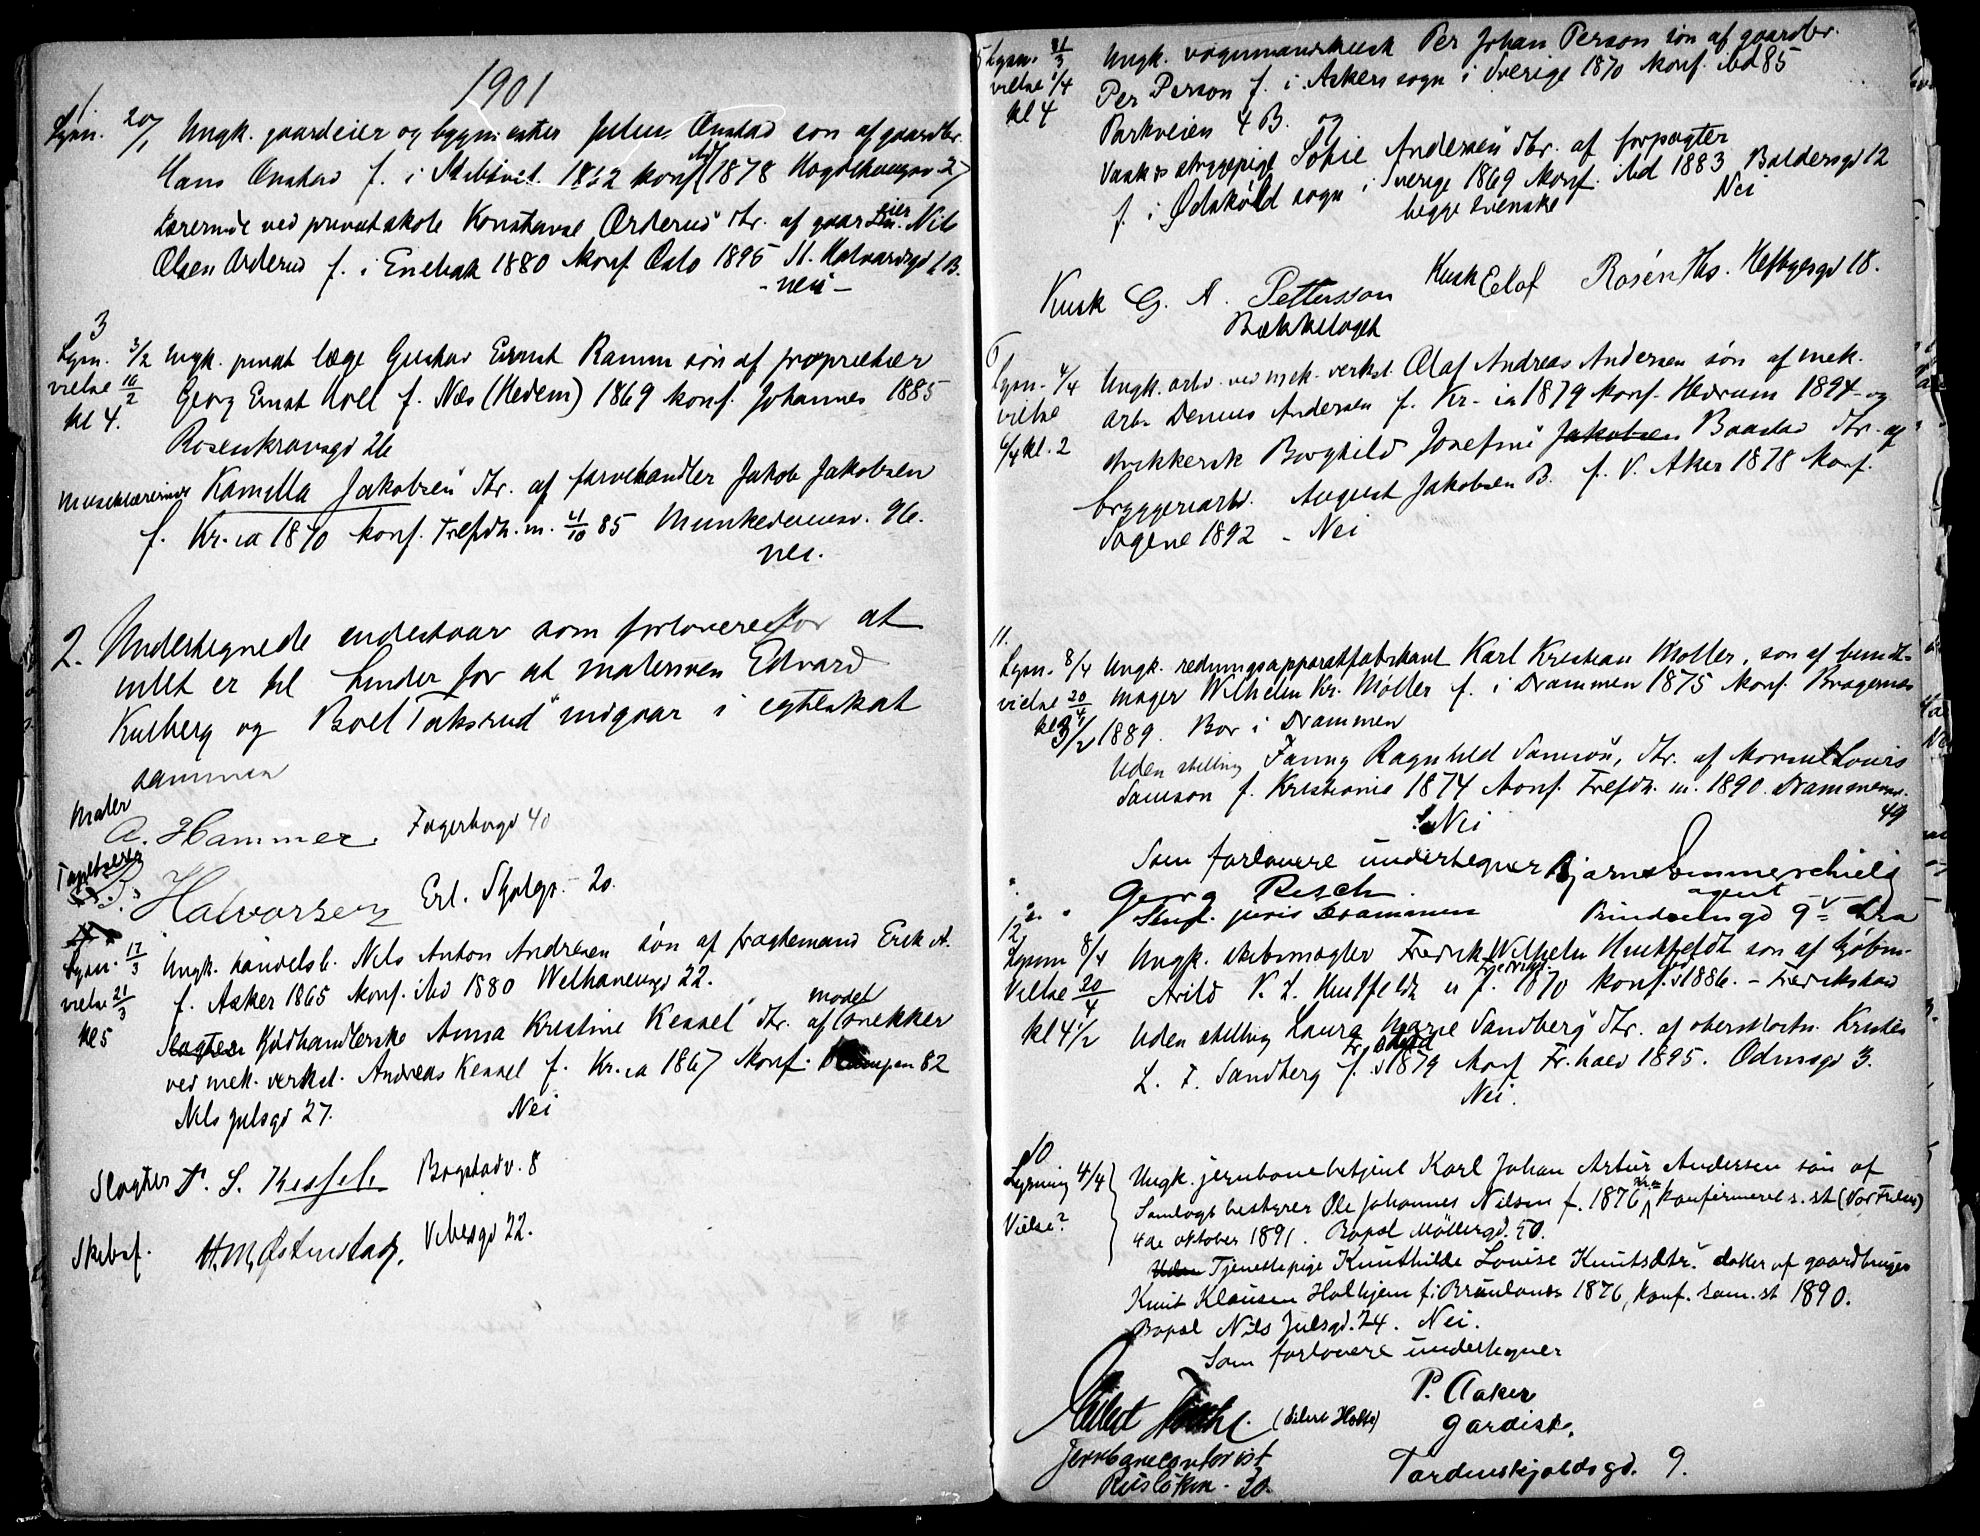 1901
1
Lysn. 20/1 Ungk. gaardeier og bygmester Julius Ønstad søn af gaardbr.
Hans Ønstad f. i Skibtvet 1862 konf. ibd 1878
Lærerinde ved privatskole Konstanse Orderud dtr. af gaardeier Nils
Olsen Orderud f. i Enebak 1880 konf Oslo 1895 St. Halvardsgd 1 B.
- nei -
3
Lysn. 3/2 Ungk. privat læge Gustav Ernst Ramm søn af proprietær
vielse 16/2 Georg Ernst Holl f. Næs (Hedem) 1869 konf. Johannes 1885
kl 4. Rosenkransgd 26
Musiklærerinde Kamilla Jakobsen dtr. af farvehandler Jakob Jakobsen
f. Kr.ia 1870 konf. Trefdh. m. 4/10 85 Munkedamsv. 96.
nei.
2. Undertegnede indestaar som forlovere for at
intet er til hinder for at malersven Edvard
Kulberg og Boel Taksrud indgaar i egteskab
sammen
Maler
A. Hammer. Fagerborgd 40
Tapetserer
Halvorsen Erl. Skjalgs.- 20.
Lysn. 17/3 Ungk. handelsb. Nils Anton Andresen søn af fragtemand Erik A.
vielse 21/3 f. Asker 1865 konf. ibd 1880 Welhavensgd 22.
kl 5 Slagter Kjødhandlerske Anna Kristine Kessel dtr. af modelsnekker
ved mek. verkst. Andreas Kessel f. Kr.ia 1867 konf. Kampen 82
Nils Julsgd 27. Nei
Slagter P. S. Kessel Bogstadv. 8
Skibsf. H. M. Østenstad, Vibesgd 22.
5 Lysn. 31/3 Ungk. vognmandskusk Per Johan Person søn af gaardbr.
vielse /4 Per Person f. i Askers sogn i Sverige 1870 konf. ibd 85
kl 4 Parkveien 4 B. og
Vask & strygepige Sofie Andersen dtr. af forpagter
f. i Ødskøld sogn i Sverige 1869 konf. ibd 1883 Baldersgd 12
begge svenske Nei
Kusk G. A. Pettersson Kusk Elof Rosén Ths. Heftyesgd 18.
Bækkelaget
6
Lysn. 4/4 Ungk. arb. ved mek. verkst. Olaf Andreas Andersen søn af mek.
vielse arb. Denius Andersen f. Kr.ia 1879 konf. Hedrum 1894 og
6/4 kl. 2 strikkersk Borghild Josefine Jakobsen Baastad dtr. af
bryggeriarb. August Jakobsen B. f. V. Aker 1878 konf.
Sagene 1892 - Nei
11.
Lysn. 8/4 Ungk. redningsapparatfabrikant Karl Kristian Møller, søn af bundt-
vielse 20/4 mager Wilhelm Kr. Møller f. i Drammen 1875 konf. Bragernes
kl 3 1/2 1889. Bor i Drammen
Uden stilling Fanny Ragnhild Samson, dtr. af Louis
Samson f. Kristiania 1874 konf. Trefdh. m. 1890. Drammensv.
49
Nei
Som forlovere undertegner Bjarne Sommerschield
Georg Resch. agent
Stud. juris Drammen
12
Lysnn 8/4 Ungk. skibsmægler Fredrik Wilhelm Huitfeldt søn af kjøbm.
Vielse 20/4 Arild V. L. Huitfeldt f. Fredrikst. 1870 konf. 1886. - Fredrikstad
kl 4 1/2 Uden stilling Laura Marie Sandberg dtr. af oberstløitn. Kristen
L. F. Sandberg f. 1879 konf Fr.hald 1895. Odinsgd 3.
Nei.
10
Lysning 4/4 Ungk. jernbanebetjent Karl Johan Artur Andersen søn af
Vielse? Samlagsbestyrer Ole Johannes Nilsen f. 1876 konfirmeret s. st (Vor Frelser)
4de oktober 1891. Bopæl Møllergd. 50.
Uden Tjenestepige Knuthilde Louise Knutsdtr. datter af gaardbruger
Knut Klausen Holkjem f. i Brunlanes 1876, konf. sam. st 1890.
Bopæl Nils Julsgd. 24. Nei.
Som forlovere undertegner
(Eilert Holte) P. Aaker
Jernbanecontorist Gardist,
Ruseløkv. 30. Tordenskjoldsgd. 9.